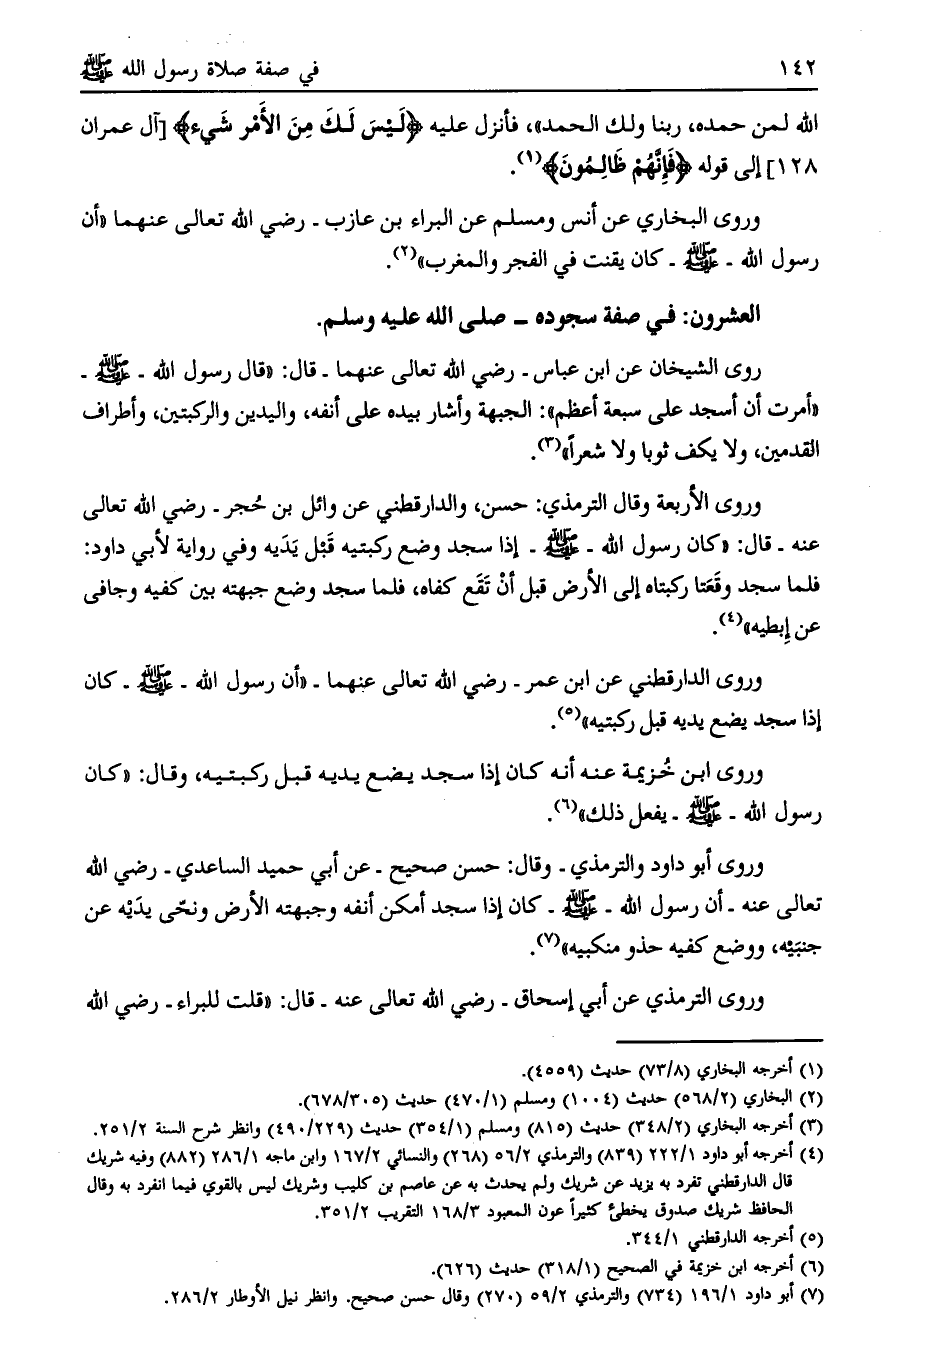 ١٤٢ في صفة صلاة رسول الله ﷺ
الله لمن حمده، ربنا ولك الحمد»، فأنزل عليه ﴿لَيْسَ لَكَ مِنَ الأَمْرِ شَيء﴾ [آل عمران
١٢٨] إلى قوله ﴿فَإِنَّهُمْ ظَالِمُونَ﴾(١).
وروى البخاري عن أنس ومسلم عن البراء بن عازب ـ رضي الله تعالى عنهما «أن
رسول الله ـ ﷺ ـ كان يقنت في الفجر والمغرب»(٢).
العشرون: في صفة سجوده ـ صلى الله عليه وسلم.
روى الشيخان عن ابن عباس ـ رضي الله تعالى عنهما ـ قال: «قال رسول الله ـ ﷺ ـ
«أمرت أن أسجد على سبعة أعظم»: الجبهة وأشار بيده على أنفه، واليدين والركبتين، وأطراف
القدمين، ولا يكف ثوبا ولا شعراً»(٣).
وروى الأربعة وقال الترمذي: حسن، والدارقطني عن وائل بن حُجر ـ رضي الله تعالى
عنه ـ قال: «كان رسول الله ـ ﷺ ـ إذا سجد وضع ركبتيه قَبْل يَدَيه وفي رواية لأبي داود:
فلما سجد وقَعَتا ركبتاه إلى الأرض قبل أنْ تَقَع كفاه، فلما سجد وضع جبهته بين كفيه وجافى
عن إِبطيه»(٤).
وروى الدارقطني عن ابن عمر ـ رضي الله تعالى عنهما ـ «أن رسول الله ـ ﷺ ـ كان
إذا سجد يضع يديه قبل ركبتيه»(٥).
وروى ابن خُزيمة عنه أنه كان إذا سجد يضع يديه قبل ركبتيه، وقال: «كان
رسول الله ـ ﷺ ـ يفعل ذلك»(٦).
وروى أبو داود والترمذي ـ وقال: حسن صحيح ـ عن أبي حميد الساعدي ـ رضي الله
تعالى عنه ـ أن رسول الله ـ ﷺ ـ كان إذا سجد أمكن أنفه وجبهته الأرض ونحّى يدَيْه عن
جنبَيْه، ووضع كفيه حذو منكبيه»(٧).
وروى الترمذي عن أبي إسحاق ـ رضي الله تعالى عنه ـ قال: «قلت للبراء ـ رضي الله
(١) أخرجه البخاري (٧٣/٨) حديث (٤٥٥٩).
(٢) البخاري (٥٦٨/٢) حديث (١٠٠٤) ومسلم (٤٧٠/١) حديث (٦٧٨/٣٠٥).
(٣) أخرجه البخاري (٣٤٨/٢) حديث (٨١٥) ومسلم (٣٥٤/١) حديث (٤٩٠/٢٢٩) وانظر شرح السنة ٢٥١/٢.
(٤) أخرجه أبو داود ٢٢٢/١ (٨٣٩) والترمذي ٥٦/٢ (٢٦٨) والنسائي ١٦٧/٢ وابن ماجه ٢٨٦/١ (٨٨٢) وفيه شريك
قال الدارقطني تفرد به يزيد عن شريك ولم يحدث به عن عاصم بن كليب وشريك ليس بالقوي فيما انفرد به وقال
الحافظ شريك صدوق يخطئ كثيراً عون المعبود ١٦٨/٣ التقريب ٣٥١/٢.
(٥) أخرجه الدارقطني ٣٤٤/١.
(٦) أخرجه ابن خزيمة في الصحيح (٣١٨/١) حديث (٦٢٦).
(٧) أبو داود ١٩٦/١ (٧٣٤) والترمذي ٥٩/٢ (٢٧٠) وقال حسن صحيح. وانظر نيل الأوطار ٢٨٦/٢.